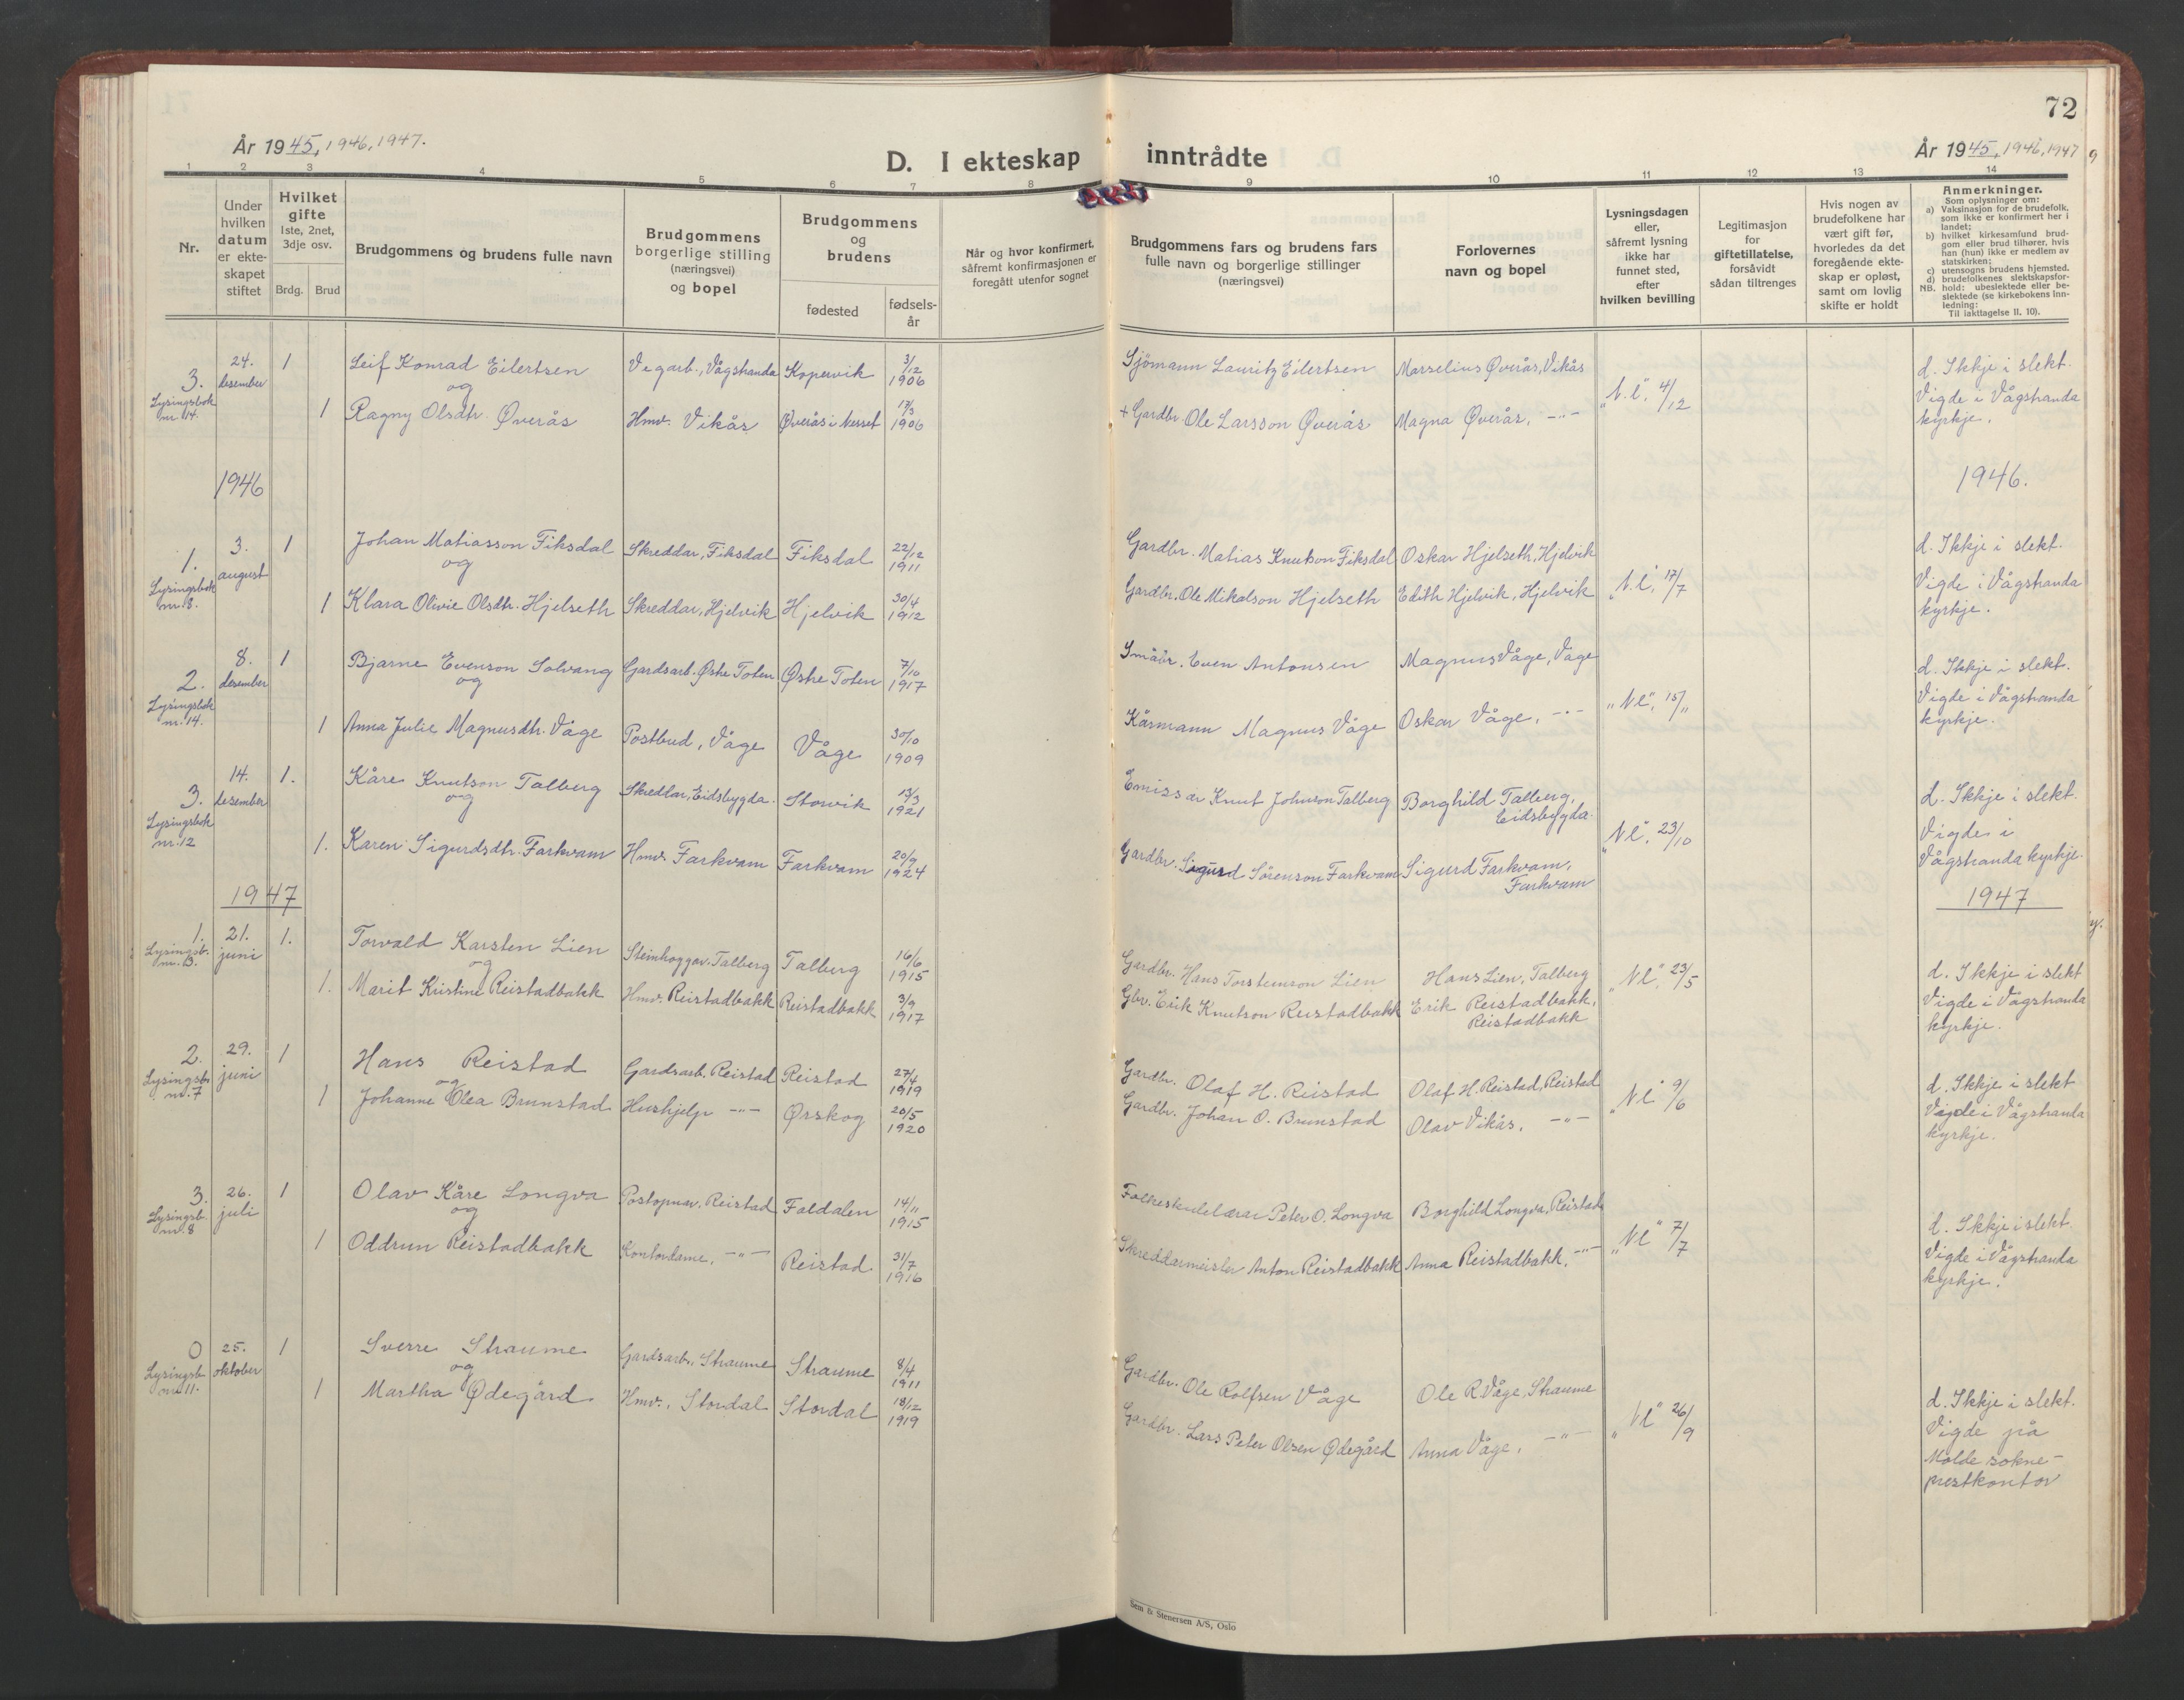 72
År 1945, 1946, 1947.
D. I ekteskap inntrådte
År 1945, 1946, 1947
1 2 3 4 5 6 7 8 9 10 11 12 13 14
Nr.
Under
hvilken
datum
er ekte-
skapet
stiftet
Hvilket
gifte
1ste, 2net,
3dje osv.
Brdg. Brud
Brudgommens og brudens fulle navn
Brudgommens
borgerlige stilling
(næringsvei)
og bopel
Brudgommens
og
brudens
fødested
fødsels-
år
Når og hvor konfirmert,
såfremt konfirmasjonen er
foregått utenfor sognet
Brudgommens fars og brudens fars
fulle navn og borgerlige stillinger
(næringsvei)
Forlovernes
navn og bopel
Lysningsdagen
eller,
såfremt lysning
ikke har
funnet sted,
efter
hvilken bevilling
Legitimasjon
for
giftetillatelse,
forsåvidt
sådan tiltrenges
Hvis nogen av
brudefolkene har
vært gift før,
hvorledes da det
foregående ekte-
skap er opløst,
samt om lovlig
skifte er holdt
Anmerkninger.
Som oplysninger om:
a) Vaksinasjon for de brudefolk,
som ikke er konfirmert her i
landet;
b) hvilket kirkesamfund brud-
gom eller brud tilhører, hvis
han (hun) ikke er medlem av
statskirken;
c) utensogns brudens hjemsted.
d) brudefolkenes slektskapsfor-
hold: ubeslektede eller be-
slektede (se kirkebokens inn-
ledning:
NB. Til iakttagelse II. 10).
3. Lysingsbok nr. 14. 24. desember 1 Leif Konrad Eilertsen Vegarb., Vågstranda Kopervik 3/12 1906 Sjömann Lauritz Eilertsen Marselius Øverås, Vikås
og
1 Ragny Olsdtr. Øverås Hmv. Vikås Øverås i Nesset 17/3 1906 + Gardbr. Ole Larsson Øverås Magna Øverås, -"- "N.l", 4/12
d. Ikkje i slekt.
Vigde i Vågstranda
kyrkje.
1946
1946.
1. Lysingsbok nr. 8. 3. august 1 Johan Matiasson Fiksdal Skreddar, Fiksdal Fiksdal 22/12 1911 Gardbr. Matias Knutson Fiksdal Oskar Hjelseth, Hjelvik
og
1 Klara Olivie Olsdtr. Hjelseth Skreddar, Hjelvik Hjelvik 30/4 1912 Gardbr. Ole Mikalson Hjelseth Edith Hjelvik, Hjelvik "N.l", 17/7
d. Ikkje i slekt.
Vigde i Vågstranda
kyrkje.
2. Lysingsbok nr. 14. 8. desember 1 Bjarne Evenson Solvang Gardsarb. Østre Toten Østre Toten 7/10 1917 Småbr. Even Antonsen Magnus Våge, Våge
og
1 Anna Julie Magnusdtr. Våge Postbud, Våge Våge 30/10 1909 Kårmann Magnus Våge Oskar Våge, -"- "Nl", 15/11
d. Ikkje i slekt.
Vigde i Vågstranda
kyrkje.
3. Lysingsbok nr. 12 14. desember 1. Kåre Knutson Talberg Skreddar, Eidsbygda. Storvik 13/3 1921 Emissær Knut Johnson Talberg Borghild Talberg, Eidsbygda.
og
1. Karen Sigurdsdtr. Farkvam Hmv. Farkvam Farkvam 20/9 1924 Gardbr. Sigurd Sörenson Farkvam Sigurd Farkvam, Farkvam "Nl", 23/10
d. Ikkje i slekt.
Vigde i
Vågstranda kyrkje.
1947
1947
1. Lysingsb. nr. 3. 21. juni 1. Torvald Karsten Lien Steinhoggar. Talberg Talberg 16/6 1915 Gardbr. Hans Torsteinson Lien Hans Lien, Talberg
og
1. Marit Kristine Reistadbakk Hmv. Reistadbakk Reistadbakk 3/9 1917 Gbr. Erik Knutson Reistadbakk Erik Reistadbakk, Reistadbakk "Nl", 23/5
d. Ikkje i slekt
Vigde i Vågstranda
kyrkje.
2. Lysingsb. nr. 7 29. juni 1 Hans Reistad Gardsarb. Reistad Reistad 27/4 1919 Gardbr. Olaf H. Reistad Olaf H. Reistad, Reistad
og
1 Johanne Olea Brunstad Hushjelp -"- Ørskog 20/5 1920 Gardbr. Johan O. Brunstad Olav Vikås, -"- "Nl" 9/6
d. Ikkje i slekt
Vigde i Vågstranda
kyrkje.
3. Lysingsb. nr. 8 26. juli 1 Olav Kåre Longva Postopnar. Reistad Foldalen 14/11 1915 Folkeskulelærar Peter O. Longva Borghild Longva, Reistad
og
1 Oddrun Reistadbakk Kontordame, -"- Reistad 31/7 1916 Skreddarmeister Anton Reistadbakk Anna Reistadbakk, -"- "Nl" 7/7
d. Ikkje i slekt.
Vigde i Vågstranda
kyrkje.
0 Lysingsb. nr. 11. 25. oktober 1 Sverre Straume Gardsarb., Straume Straume 8/4 1911 Gardbr. Ole Rolfsen Våge Ole R. Våge, Straume
og
1 Martha Ødegård. Hmv., Stordal Stordal 18/12 1919 Gardbr. Lars Peter Olsen Ødegård Anna Våge, -"- "Nl" 26/9
d. Ikkje i slekt.
Vigde på
Molde sokne-
prestkontor
Sem & Stenersen A/S, Oslo